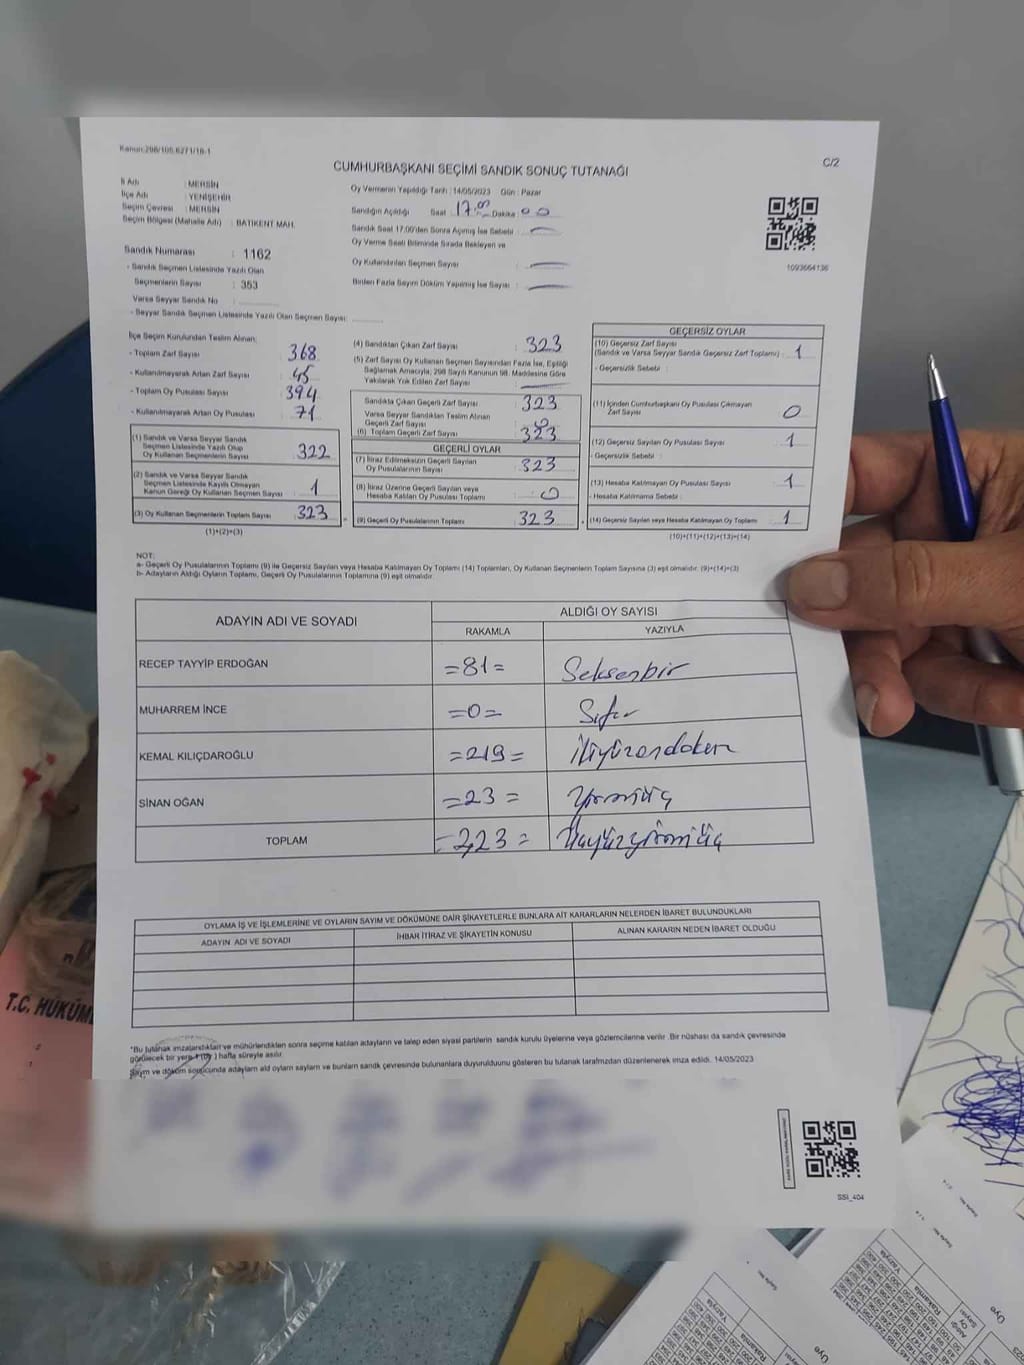 Kanun:298/105,6271/18-1
C/2
CUMHURBAŞKANI SEÇİMİ SANDIK SONUÇ TUTANAĞI
İl Adı : MERSİN
İlçe Adı : YENİŞEHİR
Seçim Çevresi : MERSİN
Seçim Bölgesi (Mahalle Adı) : BATIKENT MAH.
Sandık Numarası : 1162
- Sandık Seçmen Listesinde Yazılı Olan
Seçmenlerin Sayısı : 353
Varsa Seyyar Sandık No :
- Seyyar Sandık Seçmen Listesinde Yazılı Olan Seçmen Sayısı:
Oy Vermenin Yapıldığı Tarih : 14/05/2023 Gün : Pazar
Sandığın Açıldığı Saat : 17:00 Dakika : 00
Sandık Saat 17:00'den Sonra Açılmış İse Sebebi :
Oy Verme Saati Bitiminde Sırada Bekleyen ve
Oy Kullandırılan Seçmen Sayısı :
Birden Fazla Sayım Döküm Yapılmış İse Sayısı :
1093664136
İlçe Seçim Kurulundan Teslim Alınan:
- Toplam Zarf Sayısı : 368
- Kullanılmayarak Artan Zarf Sayısı : 45
- Toplam Oy Pusulası Sayısı : 394
- Kullanılmayarak Artan Oy Pusulası : 71
(1) Sandık ve Varsa Seyyar Sandık
Seçmen Listesinde Yazılı Olup
Oy Kullanan Seçmenlerin Sayısı : 322
(2) Sandık ve Varsa Seyyar Sandık
Seçmen Listesinde Kayıtlı Olmayan
Kanun Gereği Oy Kullanan Seçmen Sayısı : 1
(3) Oy Kullanan Seçmenlerin Toplam Sayısı : 323
(1)+(2)=(3)
(4) Sandıktan Çıkan Zarf Sayısı : 323
(5) Zarf Sayısı Oy Kullanan Seçmen Sayısından Fazla İse, Eşitliği
Sağlamak Amacıyla; 298 Sayılı Kanunun 98. Maddesine Göre
Yakılarak Yok Edilen Zarf Sayısı :
Sandıkta Çıkan Geçerli Zarf Sayısı : 323
Varsa Seyyar Sandıktan Teslim Alınan
Geçerli Zarf Sayısı : 0
(6) Toplam Geçerli Zarf Sayısı : 323
GEÇERLİ OYLAR
(7) İtiraz Edilmeksizin Geçerli Sayılan
Oy Pusulalarının Sayısı : 323
(8) İtiraz Üzerine Geçerli Sayılan veya
Hesaba Katılan Oy Pusulası Toplamı : 0
(9) Geçerli Oy Pusulalarının Toplamı : 323
GEÇERSİZ OYLAR
(10) Geçersiz Zarf Sayısı
(Sandık ve Varsa Seyyar Sandık Geçersiz Zarf Toplamı) : 1
- Geçersizlik Sebebi :
(11) İçinden Cumhurbaşkanı Oy Pusulası Çıkmayan
Zarf Sayısı : 0
(12) Geçersiz Sayılan Oy Pusulası Sayısı : 1
- Geçersizlik Sebebi :
(13) Hesaba Katılmayan Oy Pusulası Sayısı : 1
- Hesaba Katılmama Sebebi :
(14) Geçersiz Sayılan veya Hesaba Katılmayan Oy Toplamı : 1
(10)+(11)+(12)+(13)=(14)
NOT:
a- Geçerli Oy Pusulalarının Toplamı (9) ile Geçersiz Sayılan veya Hesaba Katılmayan Oy Toplamı (14) Toplamları, Oy Kullanan Seçmenlerin Toplam Sayısına (3) eşit olmalıdır. (9)+(14)=(3)
b- Adayların Aldığı Oyların Toplamı, Geçerli Oy Pusulalarının Toplamına (9) eşit olmalıdır.
ADAYIN ADI VE SOYADI ALDIĞI OY SAYISI
RAKAMLA YAZIYLA
RECEP TAYYİP ERDOĞAN =81= Seksenbir
MUHARREM İNCE =0= Sıfır
KEMAL KILIÇDAROĞLU =219= İkiyüzondokuz
SİNAN OĞAN =23= Yirmiüç
TOPLAM =323= Üçyüzyirmiüç
OYLAMA İŞ VE İŞLEMLERİNE VE OYLARIN SAYIM VE DÖKÜMÜNE DAİR ŞİKAYETLERLE BUNLARA AİT KARARLARIN NELERDEN İBARET BULUNDUKLARI
ADAYIN ADI VE SOYADI İHBAR İTİRAZ VE ŞİKAYETİN KONUSU ALINAN KARARIN NEDEN İBARET OLDUĞU
*Bu tutanak imzalandıktan ve mühürlendikten sonra seçime katılan adayların ve talep eden siyasi partilerin sandık kurulu üyelerine veya gözlemcilerine verilir. Bir nüshası da sandık çevresinde
görülecek bir yere 1 (bir) hafta süreyle asılır.
Sayım ve döküm sonucunda adayların aldı oyların sayıları ve bunların sandık çevresinde bulunanlara duyurulduunu gösteren bu tutanak tarafımızdan düzenlenerek imza edildi. 14/05/2023
SSI_404
T.C. HÜKÜM